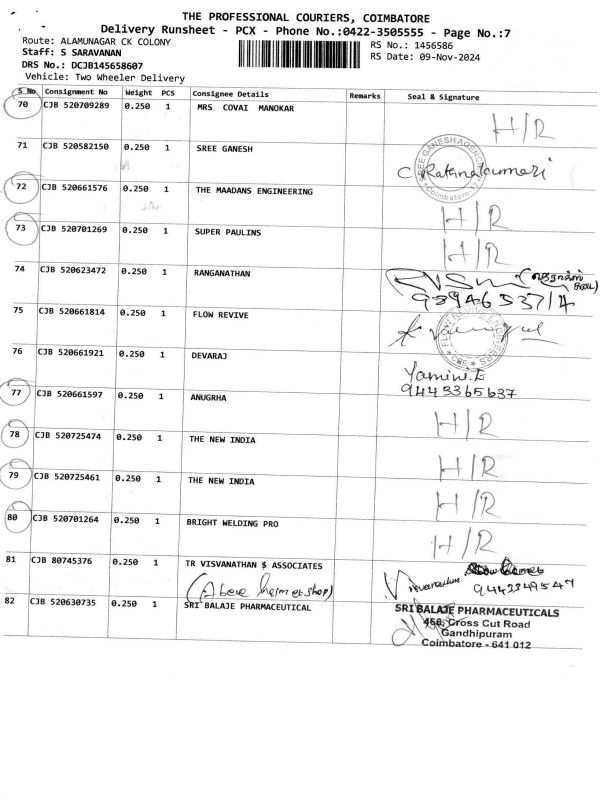 THE PROFESSIONAL COURIERS, COIMBATORE
Delivery Runsheet - PCX - Phone No.:0422-3505555 - Page No.:7
Route: ALAMUNAGAR CK COLONY RS No.: 1456586
Staff: S SARAVANAN RS Date: 09-Nov-2024
DRS No.: DCJB145658607
Vehicle: Two Wheeler Delivery
S No Consignment No Weight PCS Consignee Details Remarks Seal & Signature
70 CJB 520709289 0.250 1 MRS COVAI MANOKAR H/R
71 CJB 520582150 0.250 1 SREE GANESH SREE GANESH AGENCY Coimbatore-12 C Rathnakumari
72 CJB 520661576 0.250 1 THE MAADANS ENGINEERING H/R
73 CJB 520701269 0.250 1 SUPER PAULINS H/R
74 CJB 520623472 0.250 1 RANGANATHAN
75 CJB 520661814 0.250 1 FLOW REVIVE FLOW REVIVE CBE
76 CJB 520661921 0.250 1 DEVARAJ Yamini.E
9443365637
77 CJB 520661597 0.250 1 ANUGRHA H/R
78 CJB 520725474 0.250 1 THE NEW INDIA H/R
79 CJB 520725461 0.250 1 THE NEW INDIA H/R
80 CJB 520701264 0.250 1 BRIGHT WELDING PRO H/R
81 CJB 80745376 0.250 1 TR VISVANATHAN $ ASSOCIATES
(Above helmet shop)
82 CJB 520630735 0.250 1 SRI BALAJE PHARMACEUTICAL SRI BALAJE PHARMACEUTICALS
468, Cross Cut Road
Gandhipuram
Coimbatore - 641 012